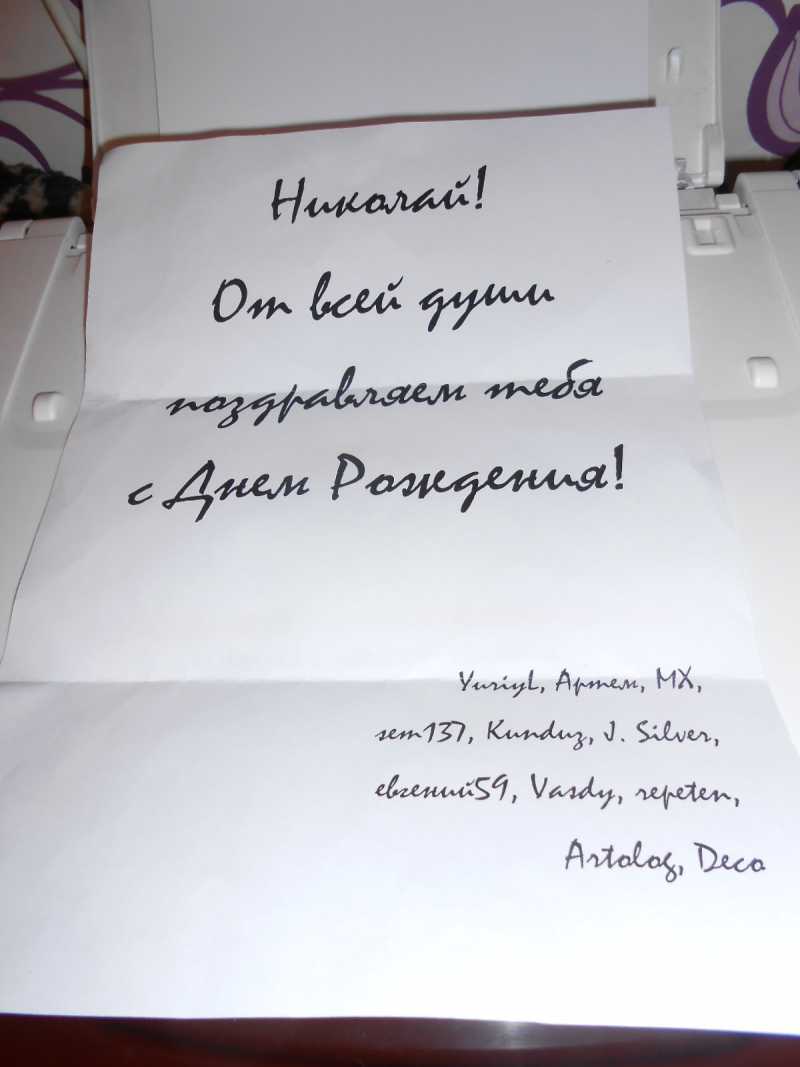 Николай!
От всей души
поздравляем тебя
с Днем Рождения!
YuriyL, Артем, MX,
sem137, Kunduz, J. Silver,
евгений59, Vasdy, repeten,
Artolog, Deco